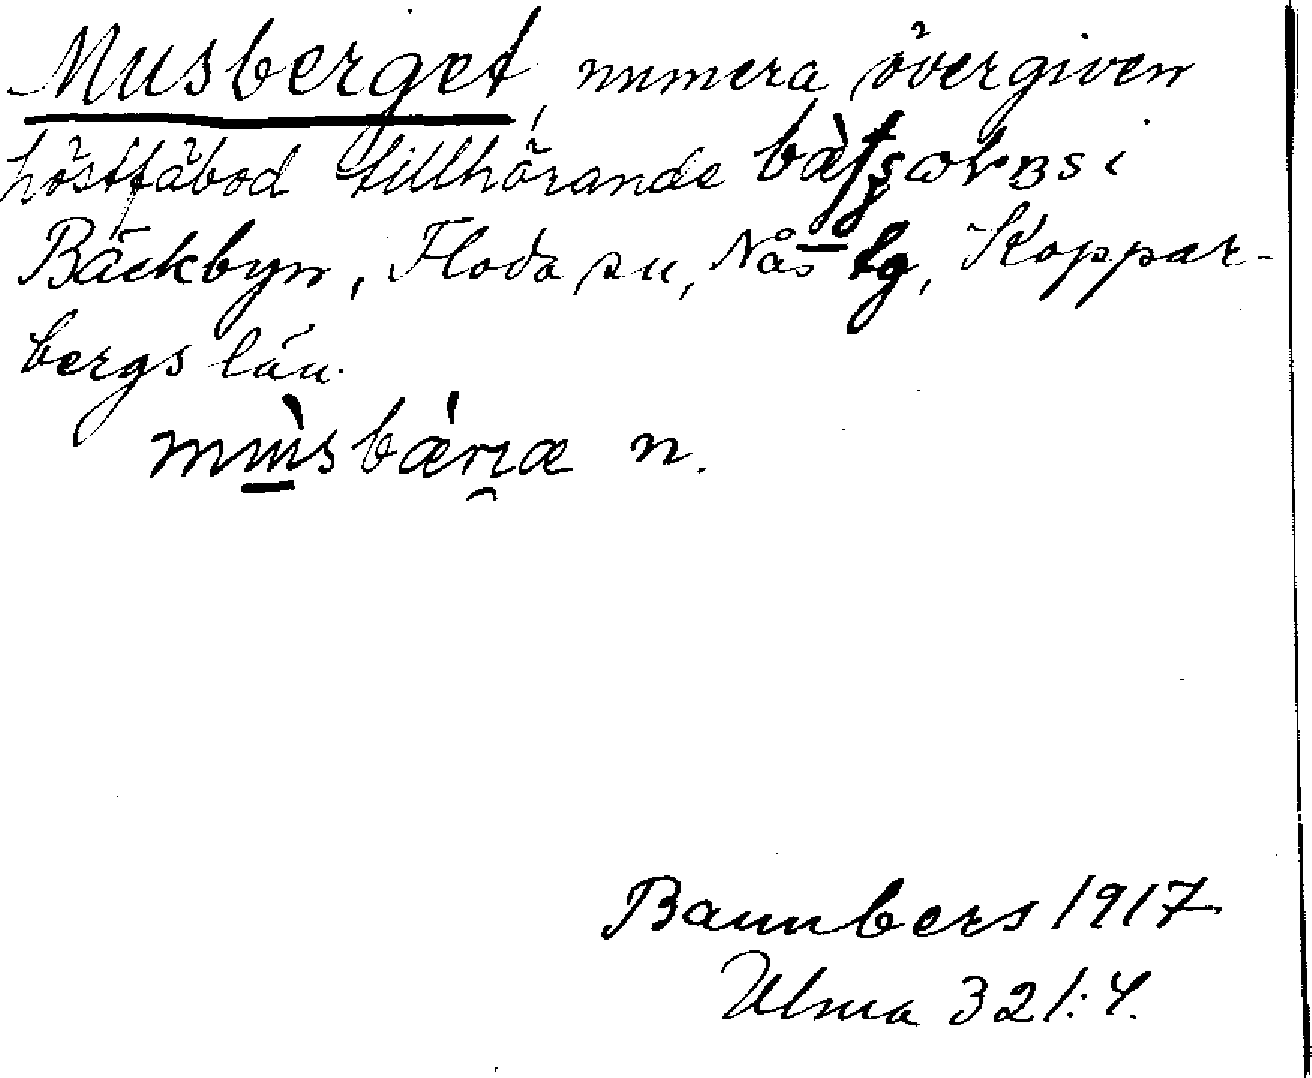 Musberget, numera övergiven
höstfäbod tillhörande i
Bäckbyn, Floda sn, Nås tg, Koppar-
bergs län.
n.
Bannbers 1917
Ulma 321:4.